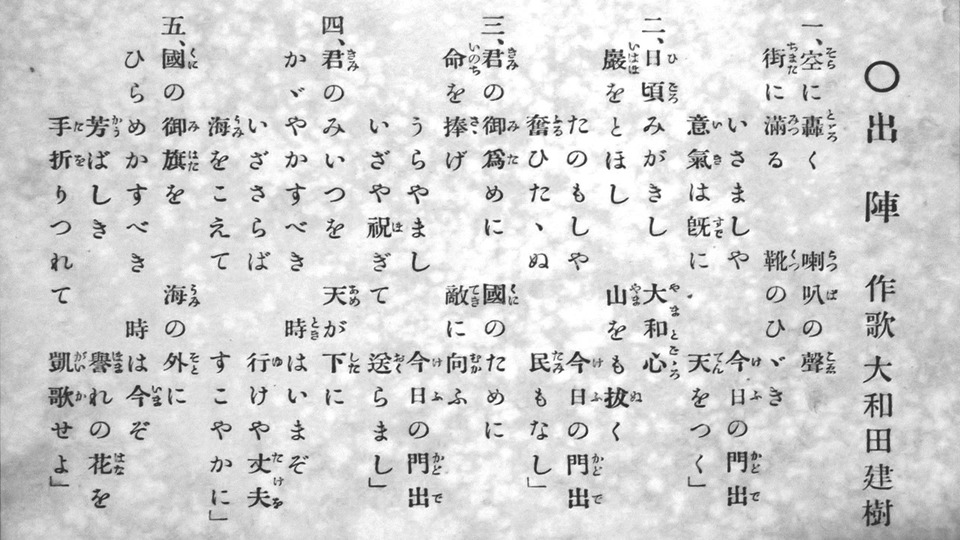 〇出陣　作歌大和田建樹
一、空に轟く　喇叭の聲
街に滿る　靴のひゞき
いさましや　今日の門出
意氣は旣に　天をつく」
二、日頃みがきし　大和心
巖をとほし　山をも拔く
たのもしや　今日の門出
奮ひたゝぬ　民もなし」
三、君の御爲めに　國のために
命を捧げ　敵に向ふ
うらやまし　今日の門出
いざや祝ぎて　送らまし」
四、君のみいつを　天が下に
かゞやかすべき　時はいまぞ
いざさらば　行けや丈夫
海をこえて　すこやかに」
五、國の御旗を　海の外に
ひらめかすべき　時は今ぞ
芳ばしき　譽れの花を
手折りつれて　凱歌せよ」